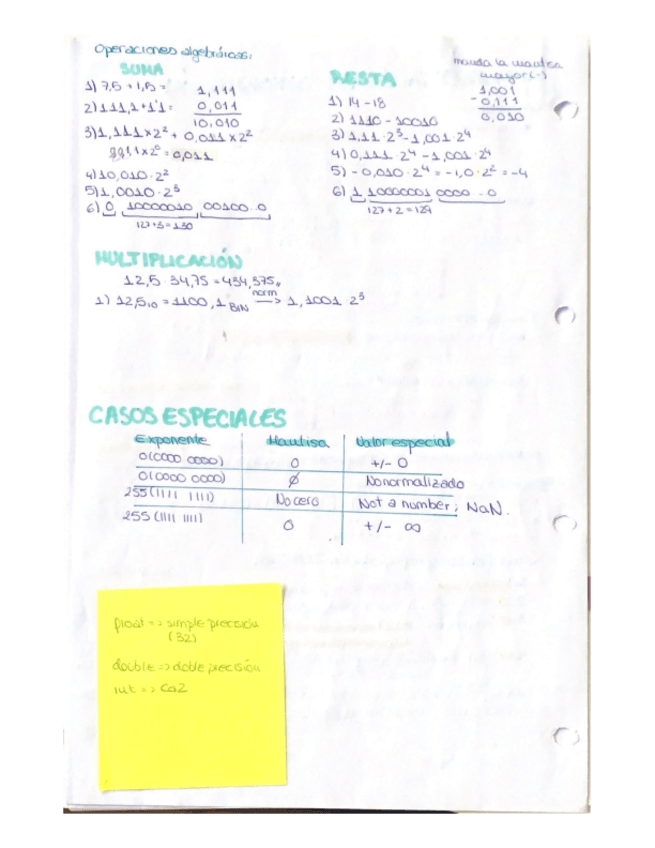 Operaciones algebráicas:
SUMA
1) 7,5 + 1,5 =
2) 111,1 + 1'1 =
1,111
0,011
10,010
3) 1,111 x 2² + 0,011 x 2²
1 x 2⁰ = 0,011
4) 10,010 · 2²
5) 1,0010 · 2³
6) 0 10000010 00100..0
127+3=130
manda la mantisa
mayor (-)
RESTA
1,001
- 0,111
0,010
1) 14 - 18
2) 1110 - 10010
3) 1,11 · 2³ - 1,001 · 2⁴
4) 0,111 · 2⁴ - 1,001 · 2⁴
5) - 0,010 · 2⁴ = -1,0 · 2² = -4
6) 1 10000001 0000 - 0
127 + 2 = 129
MULTIPLICACIÓN
12,5 · 34,75 = 434,375
1) 12,5₁₀ = 1100,1 BIN norm → 1,1001 2³
CASOS ESPECIALES
Exponente Mantisa Valor especial
0 (0000 0000) 0 +/- 0
0 (0000 0000) Ø No normalizado
255 (1111 1111) No cero Not a number; NaN.
255 (1111 1111) 0 +/- ∞
float => simple precisión
(32)
double => doble precisión
int => Ca2